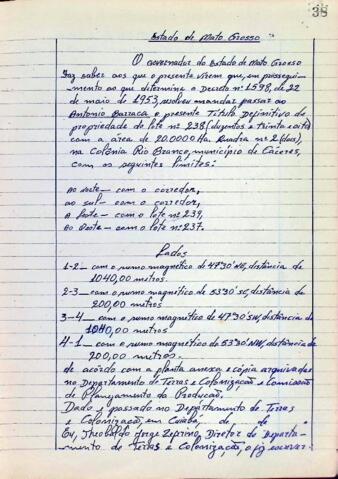 38
Estado de Mato Grosso
O Governador do Estado de Mato Grosso
Faz saber aos que o presente virem que, em prossegui-
mento ao que determina o Decreto nº 1598, de 22
de maio de 1953, resolveu mandar passar ao
Antonio Barraca o presente Titulo Definitivo de
propriedade do lote nº 238 (duzentos e trinta e oito)
com a área de 20.0000 Ha. Quadra nº 2 (dois),
na Colônia Rio Branco, município de Cáceres,
com os seguintes limites:
Ao norte – com o corredor,
ao sul – com o corredor,
A Leste – com o lote nº 239,
Ao Oeste – com o lote nº 237.
Lados
1-2 – com o rumo magnético de 47º30' NE, distância de
1040,00 metros.
2-3 – com o rumo magnético de 53º30' SE, distância de
200,00 metros
3-4 – com o rumo magnético de 47º30' SW, distância de
1040,00 metros
4-1 – com o rumo magnético de 53º30' NW, distância de
200,00 metros.
de acordo com a planta anexa e cópia arquivada
no Departamento de Terras e Colonização e Comissão
de Planejamento da Produção.
Dado e passado no Departamento de Terras
e Colonização, em Cuiabá, de de
Eu, Theobaldo Jorge Zeprino, Diretor do Departa-
mento de Terras e Colonização, o fiz escrever.